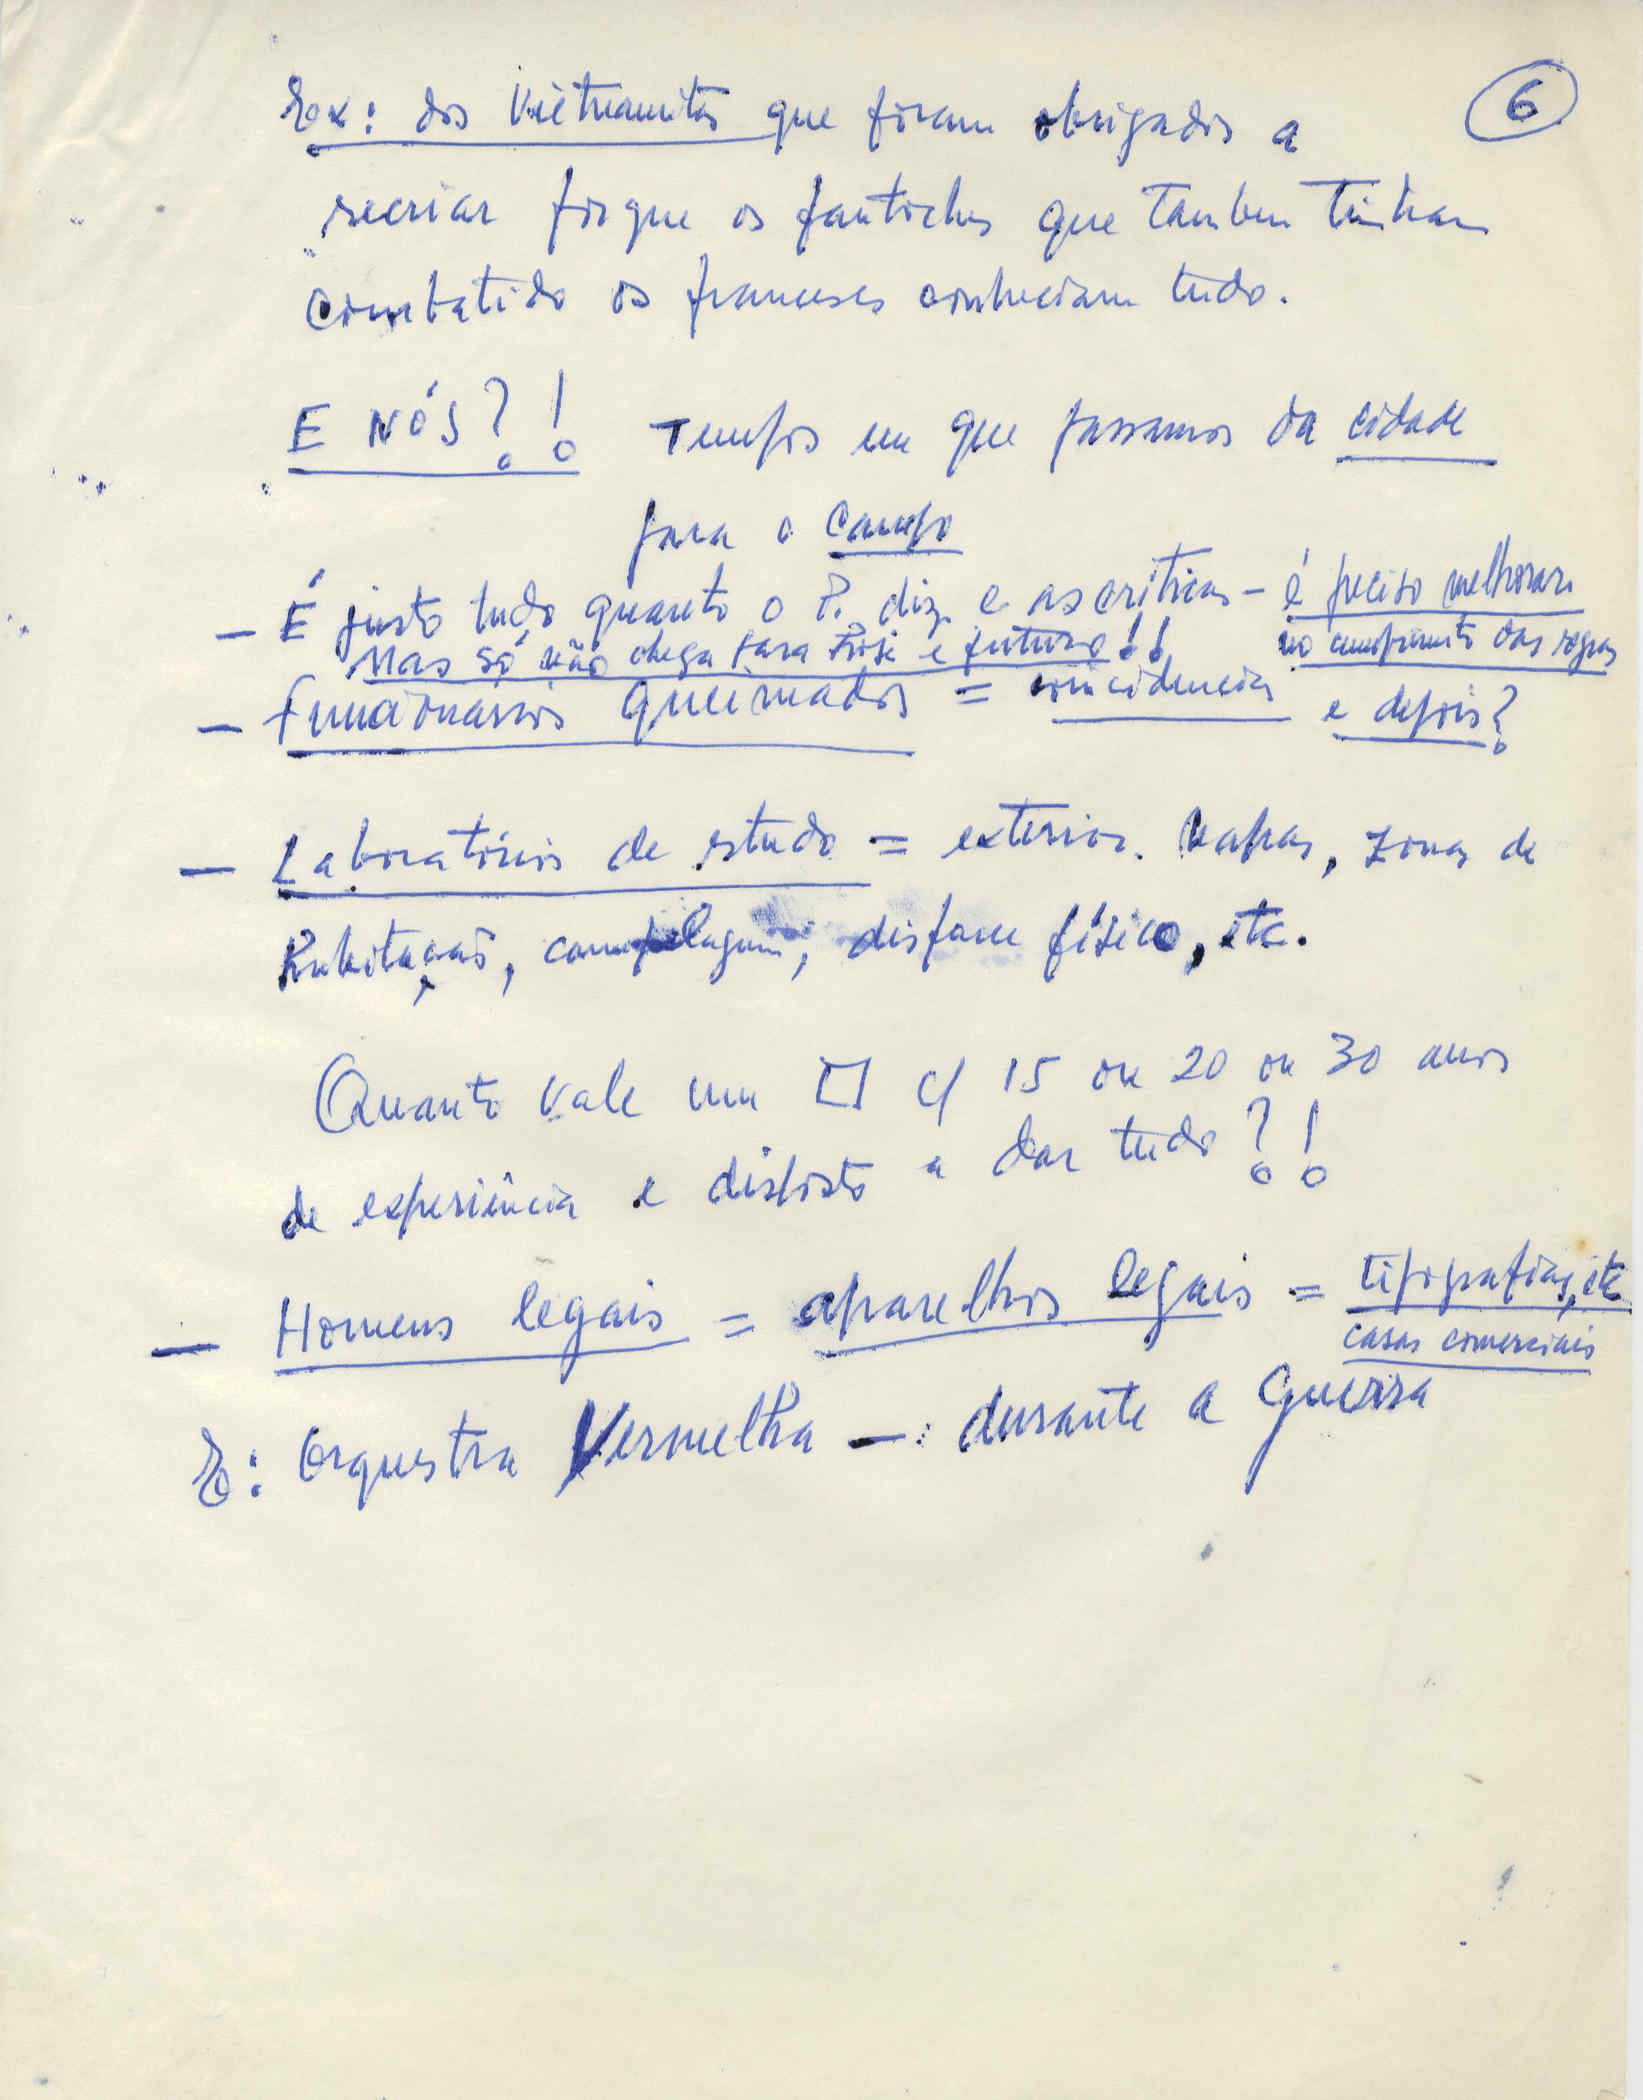 6
Ex: dos Vietnamitas que foram obrigados a
recriar porque os fantoches que tambem tinham
combatido os franceses conheciam tudo.
E NÓS?! Tempos em que passamos da cidade
para o campo
– É justo tudo quanto o P. diz e as críticas – é preciso melhorar
no cumprimento das regras
Mas só não chega para hoje e futuro!!
– Funcionarios queimados = coincidencia e depois?
– Laboratórios de estudo = exterior. Mapas, zonas de
habitação, camuflagem, disfarce físico, etc.
Quanto vale um □ c/ 15 ou 20 ou 30 anos
de experiência e disposto a dar tudo?!
– Homens legais = aparelhos legais = tipografias, etc
casas comerciais
E: Orquestra Vermelha – durante a Guerra